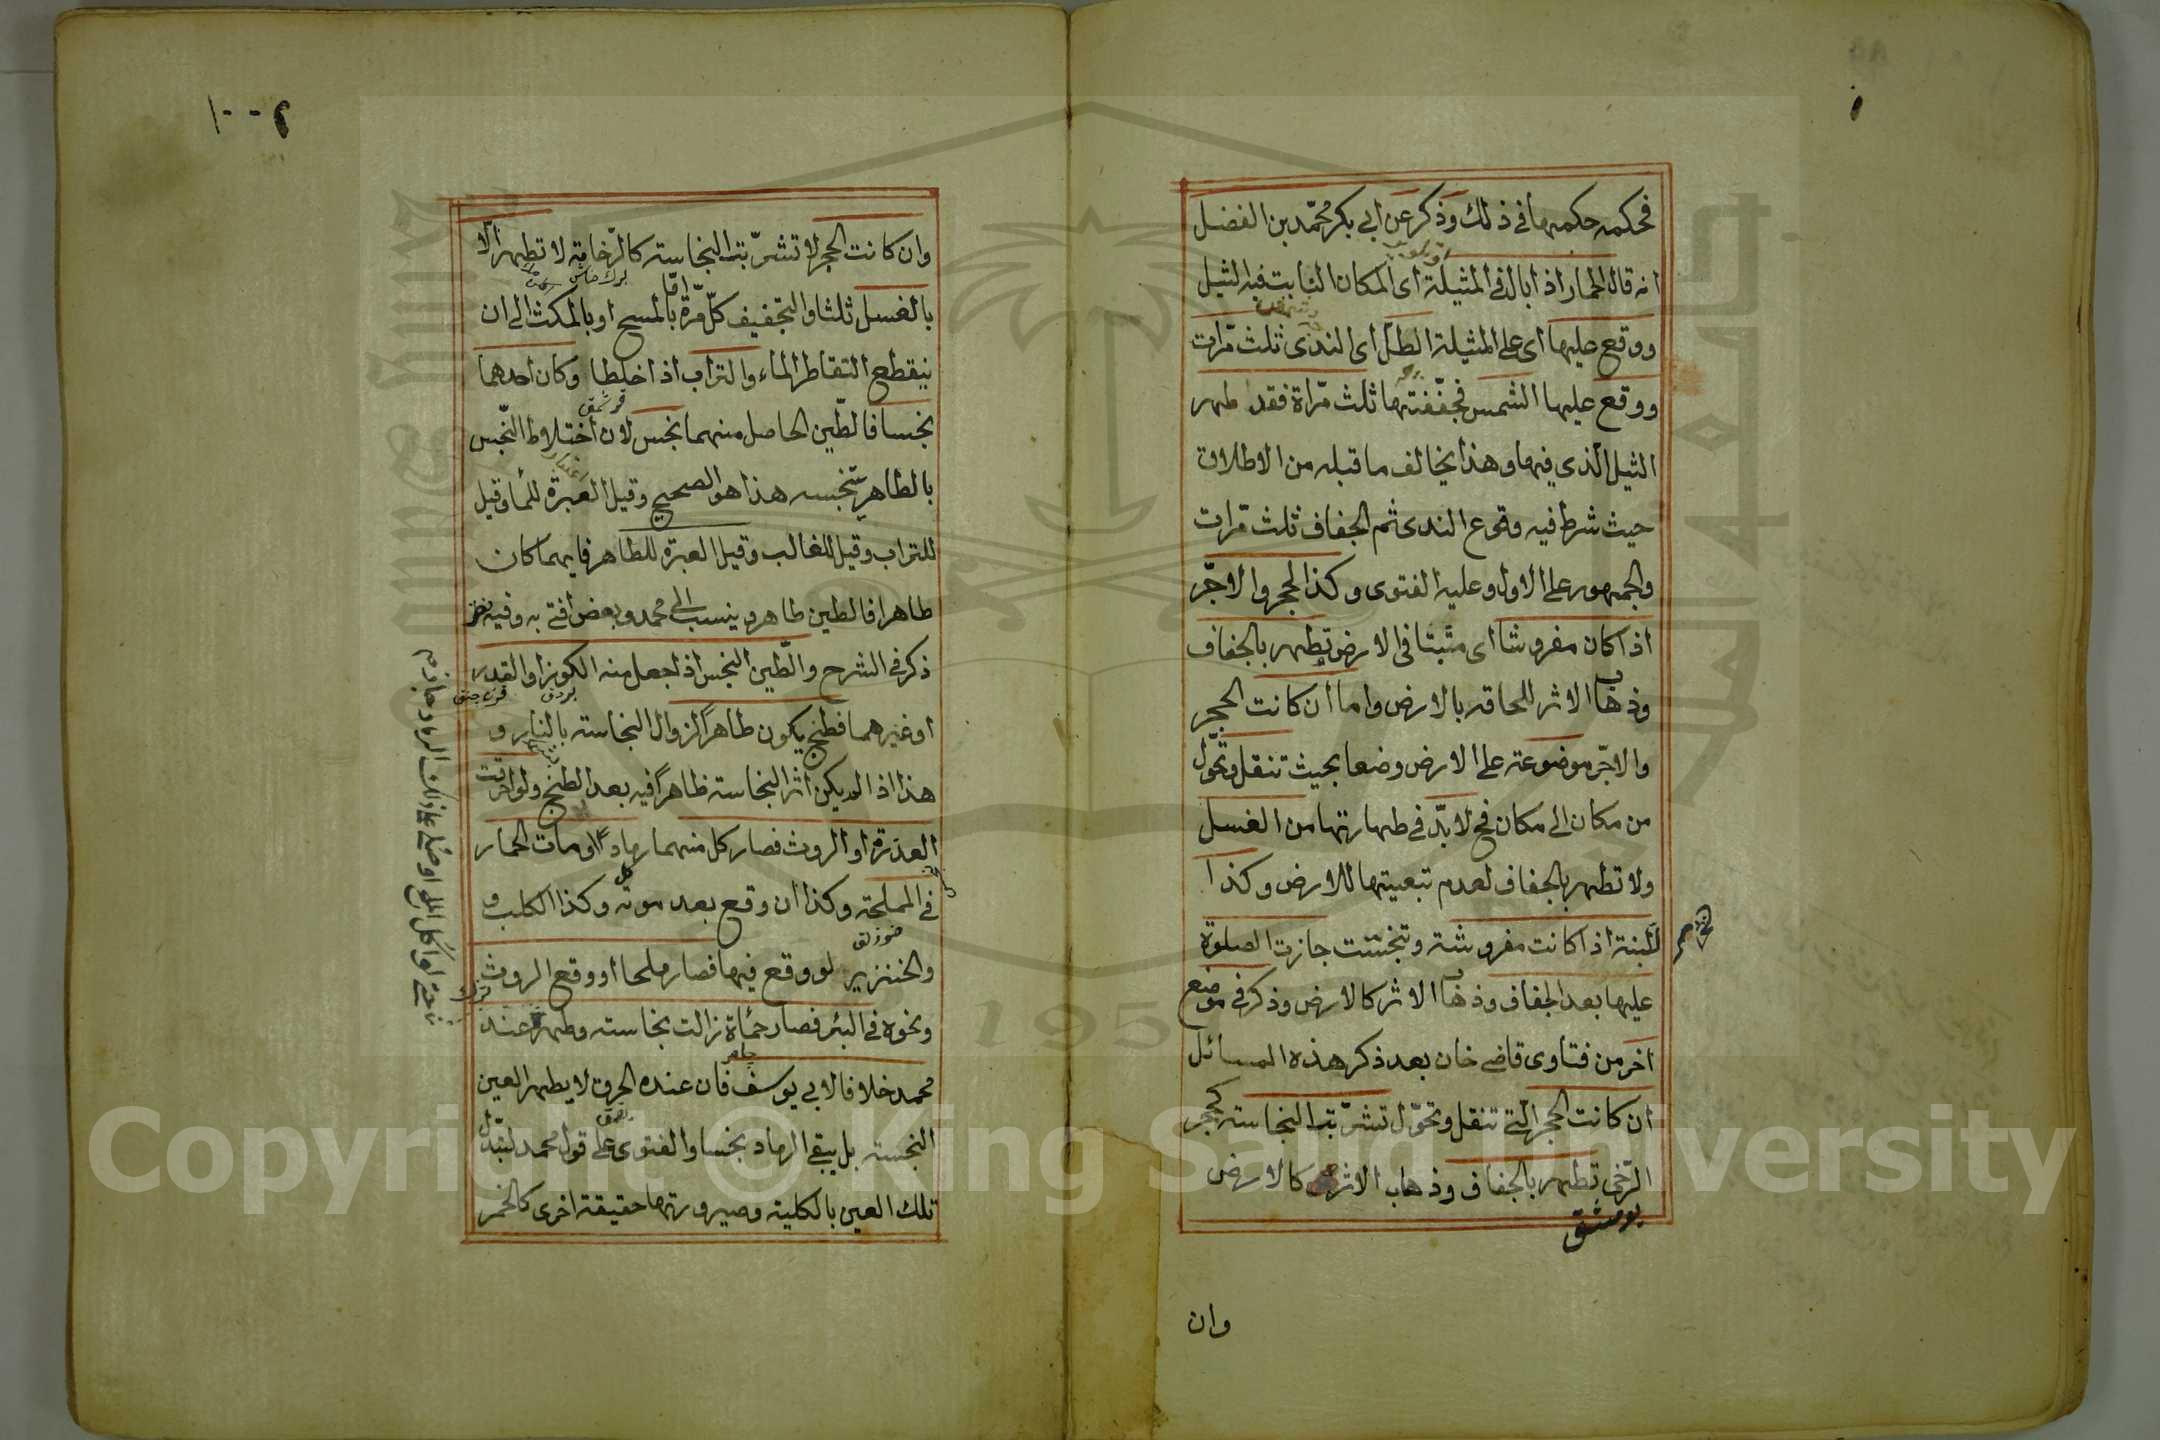 فحكمه حكمها في ذلك وذكر عن ابي بكر محمّد بن الفضل
انه قال الحمار اذا بال في المثيلة اى المكان النابت فيه الثيل
ووقع عليها اى على المثيلة الطلّ اى الندى ثلث مرّات
ووقع عليها الشمس فجفّفتها ثلث مرّاة فقد طهر
الثيل الذي فيها وهذا يخالف ما قبله من الاطلاق
حيث شرط فيه وقوع الندى ثم الجفاف ثلث مرّات
والجمهور على الاول وعليه الفتوى وكذا الحجر والاجرّ
اذا كان مفروشا اى مثبتا في الارض تطهر بالجفاف
وذهاب الاثر للحاقه بالارض واما ان كانت الحجر
والاجرّ موضوعة على الارض وضعا بحيث تنقل وتحوّل
من مكان الى مكان فح لا بدّ في طهارتها من الغسل
ولا تطهر بالجفاف لعدم تبعيتها للارض وكذا
للبنة اذا كانت مفروشة وتنجست جازت الصلوة
عليها بعد الجفاف وذهاب الاثر كالارض وذكر في موضع
اخر من فتاوى قاضى خان بعد ذكر هذه المسائل
ان كانت الحجر التى تنقل وتحوّل تشرّبت النجاسة كحجر
الرّخى تطهر بالجفاف وذهاب الاثر كالارض
وان
١٠٠
وان كانت الحجر لا تشرّبت النجاسة كالرّخامة لا تطهر الّا
بالغسل ثلثا والتجفيف كلّ مرّة امّا بالمسح او بالمكث الى ان
ينقطع التقاطر الماء والتراب اذا اخلطا وكان احدهما
نجسا فالطّين الحاصل منهما نجس لان اختلاط النّجس
بالطاهر ينجسه هذا هو الصحيح وقيل العبرة للماء وقيل
للتراب وقيل للغالب وقيل العبرة للطاهر فايهما كان
طاهرا فالطين طاهر وينسب الى محمد وبعض افتى به وفيه نظر
ذكر في الشرح والطّين النجس اذا جعل منه الكوز او القدر
او غيرهما فطبخ يكون طاهراً لزوال النجاسة بالنار و
هذا اذا لم يكن اثر النجاسة ظاهراً فيه بعد الطبخ ولو احرقت
العذرة او الروث فصار كل منهما رماداً او مات الحمار
في المملحة وكذا ان وقع بعد موته وكذا الكلب و
والخنزير لو وقع فيها فصار ملحا او وقع الروث
ونحوه في البئر فصار حمأة زالت نجاسته وطهر عند
محمد خلافا لابي يوسف فان عنده الحرق لا يطهر العين
النجسة بل يبقى الرماد نجسا والفتوى على قول محمد لتبدّل
تلك العين بالكلية وصيرورتها حقيقة اخرى كالخمر
Copyright © King Saud University
195